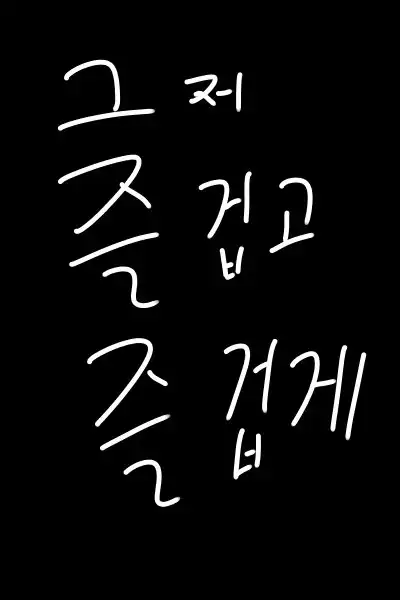 그저
즐겁고
즐겁게